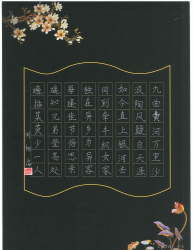 九曲黄河万里沙
浪淘风簸自天涯
如今直上银河去
同到牵牛织女家
独在异乡为异客
每逢佳节倍思亲
遥知兄弟登高处
遍插茱萸少一人